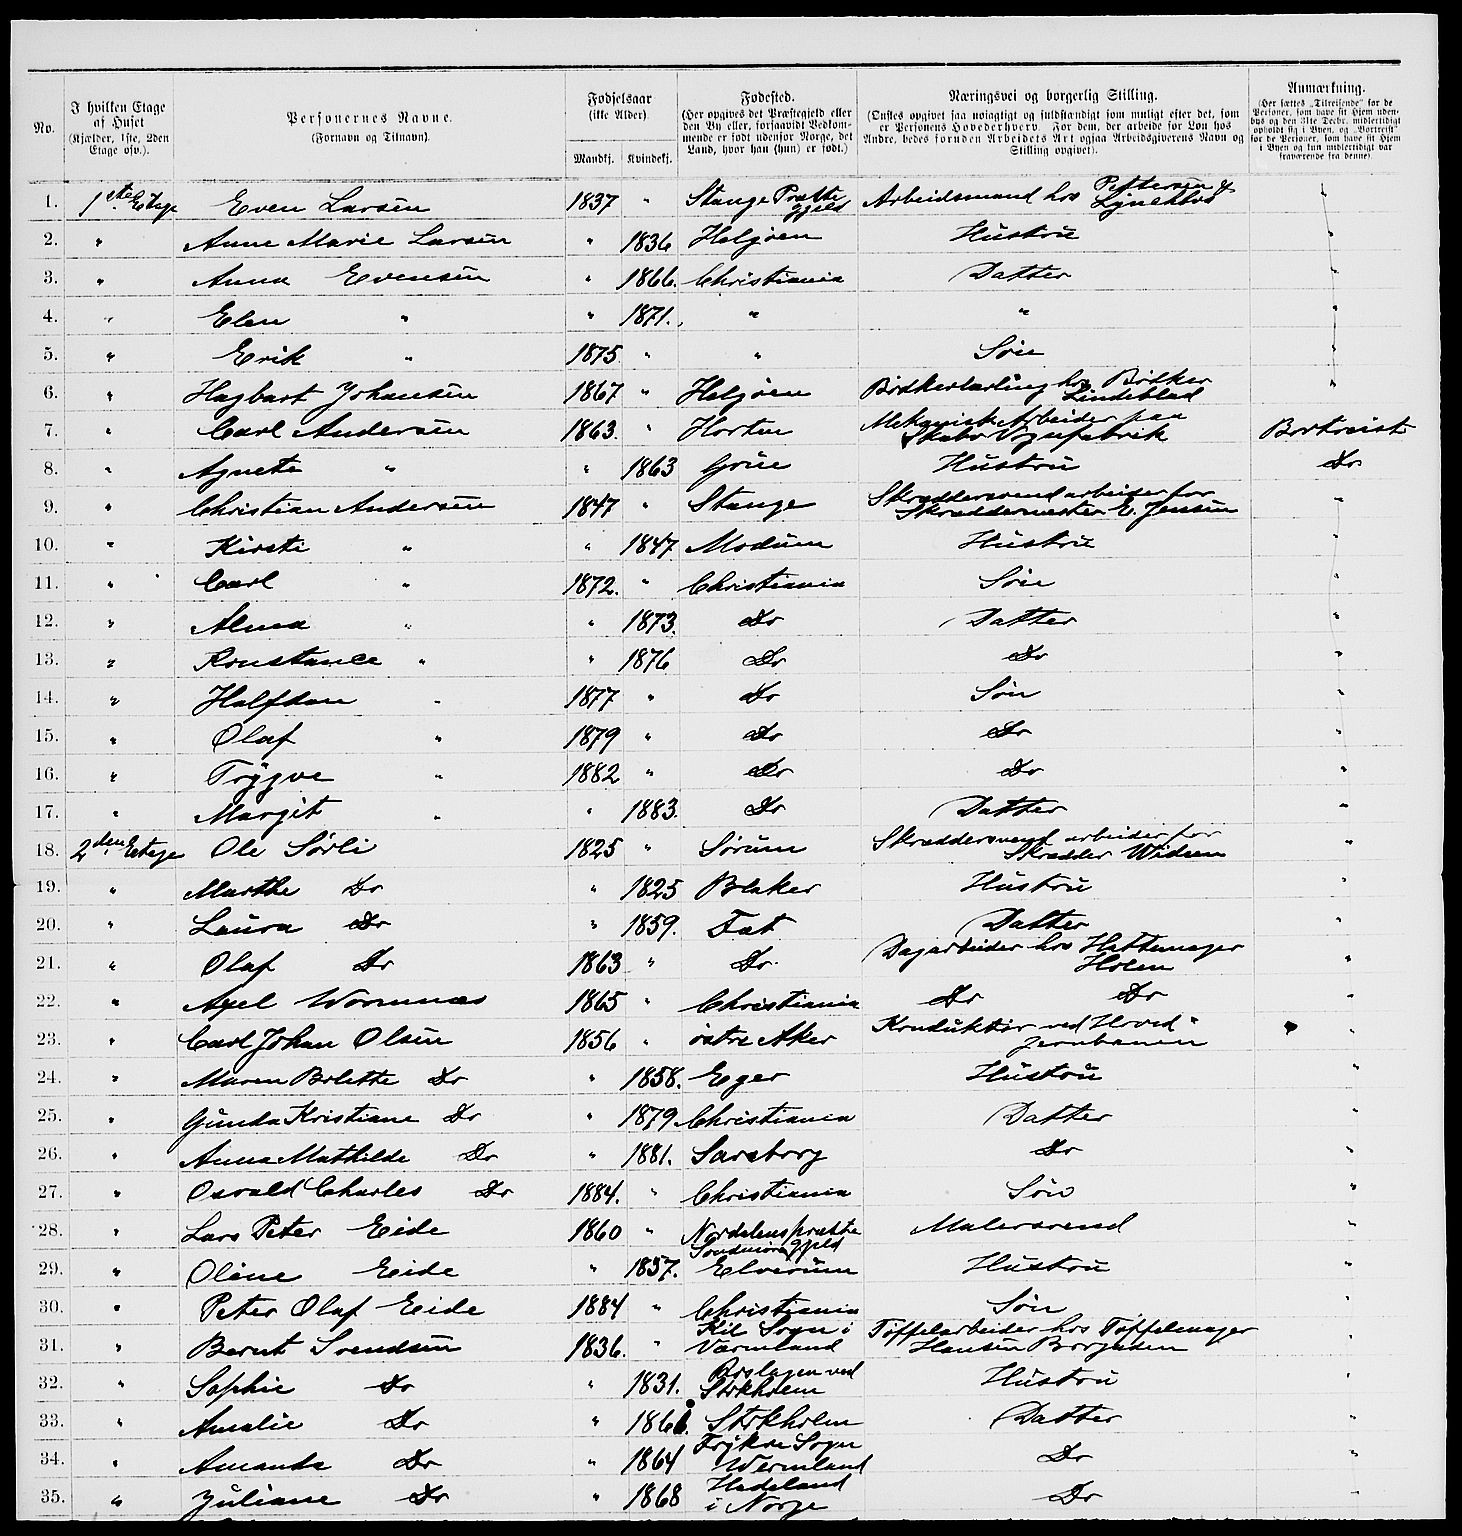 No.
I hvilken Etage af Huset (Kjælder, 1ste, 2den Etage osv.).
Personernes Navne. (Fornavn og Tilnavn).
Fødselsaar (ikke Alder). Mandkj. Kvindekj.
Fødested. (Her opgives det Præstegjeld eller den By eller, forsaavidt Vedkommende er født udenfor Norge, det Land, hvor han (hun) er født.)
Næringsvei og borgerlig Stilling. (Ønskes opgivet saa nøiagtigt og fuldstændigt som muligt efter det, som er Personens Hovederhverv. For dem, der arbeide for Løn hos Andre, bedes foruden Arbeidets Art ogsaa Arbeidsgiverens Navn og Stilling opgivet).
Anmærkning. (Her sættes „Tilreisende“ for de Personer, som have sit Hjem udenbys og den 31te Decbr. midlertidigt opholdt sig i Byen, og „Bortreist“ for de Personer, som have sit Hjem i Byen og kun midlertidigt var fraværende fra denne).
1. 1ste Etage Even Larsen 1837 " Stange Præstegjeld Arbeidsmand hos Pettersen &
2. " Anne Marie Larsen " 1836 Helgøen Hustru "
3. " Anna Evensen " 1866. Christiania Datter "
4. " Elen " " 1871. " " "
5. " Erik " 1875 " " Søn "
6. " Hagbart Johansen 1867 " Helgøen Bødkerlærling hos Bødker Lindeblad "
7. " Carl Andersen 1863. " Horten Mekanisk Arbeider paa Skabo Vognfabrik Bortreist
8. " Agnete " " 1863 Grue Hustru Do
9. " Christian Andersen 1847 " Stange Skræddersvend arbeider for Skræddermester E. Jensen "
10. " Kirsti " " 1847 Modum Hustru "
11. " Carl " 1872. " Christiania Søn "
12. " Alma " " 1873. Do Datter "
13. " Konstance " " 1876 Do Do "
14. " Halfdan " 1877 " Do Søn "
15. " Olaf " 1879 " Do Do "
16. " Trygve " 1882 " Do Do "
17. " Margit " " 1883. Do Datter "
18. 2den Etage Ole Sørli 1825 " Sørum Skræddersvend arbeider for Skrædder Widsen "
19. " Marthe Do " 1825 Blaker Hustru "
20. " Laura Do " 1859. Fet Datter "
21. " Olaf Do 1863 " Do Dagarbeider hos Hattemager Holen "
22. " Axel Wormnæs 1865 " Christiania Do Do "
23. " Carl Johan Olsen 1856 " østre Aker Konduktør ved Hoved-jernbanen "
24. " Maren Bolette Do " 1858. Eger Hustru "
25. " Gunda Kristiane Do " 1879 Christiania Datter "
26. " Anna Mathilde Do " 1881. Sarsborg Do "
27. " Osvald Charles Do 1884. " Christiania Søn "
28. " Lars Peter Eide 1860 " Nordalens præstegjeld Søndmøre Malersvend "
29. " Oline Eide " 1857. Elverum Hustru "
30. " Peter Olaf Eide 1884 " Christiania Søn "
31. " Bernt Svendsen 1836. " Kil Sogn i Värmland Tøffelarbeider hos Tøffelmager Hansen Borgaden "
32. " Sophie Do " 1831. Roslagen ved Stokholm Hustru "
33. " Amalie Do " 1861. Stokholm Datter "
34. " Amanda Do " 1864 Frykse Sogn Wermland Do "
35. " Juliane Do " 1868 Hadeland i Norge Do "